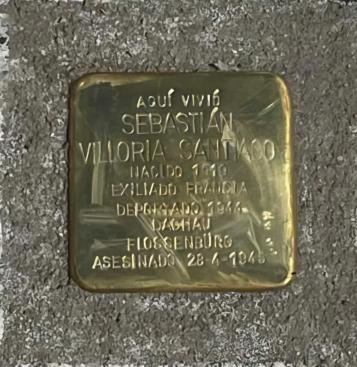 AQUÍ VIVIÓ
SEBASTIÁN
VILLORIA SANTIAGO
NACIDO 1910
EXILIADO FRANCIA
DEPORTADO 1944
DACHAU
FLOSSENBÜRG
ASESINADO 28-4-1945